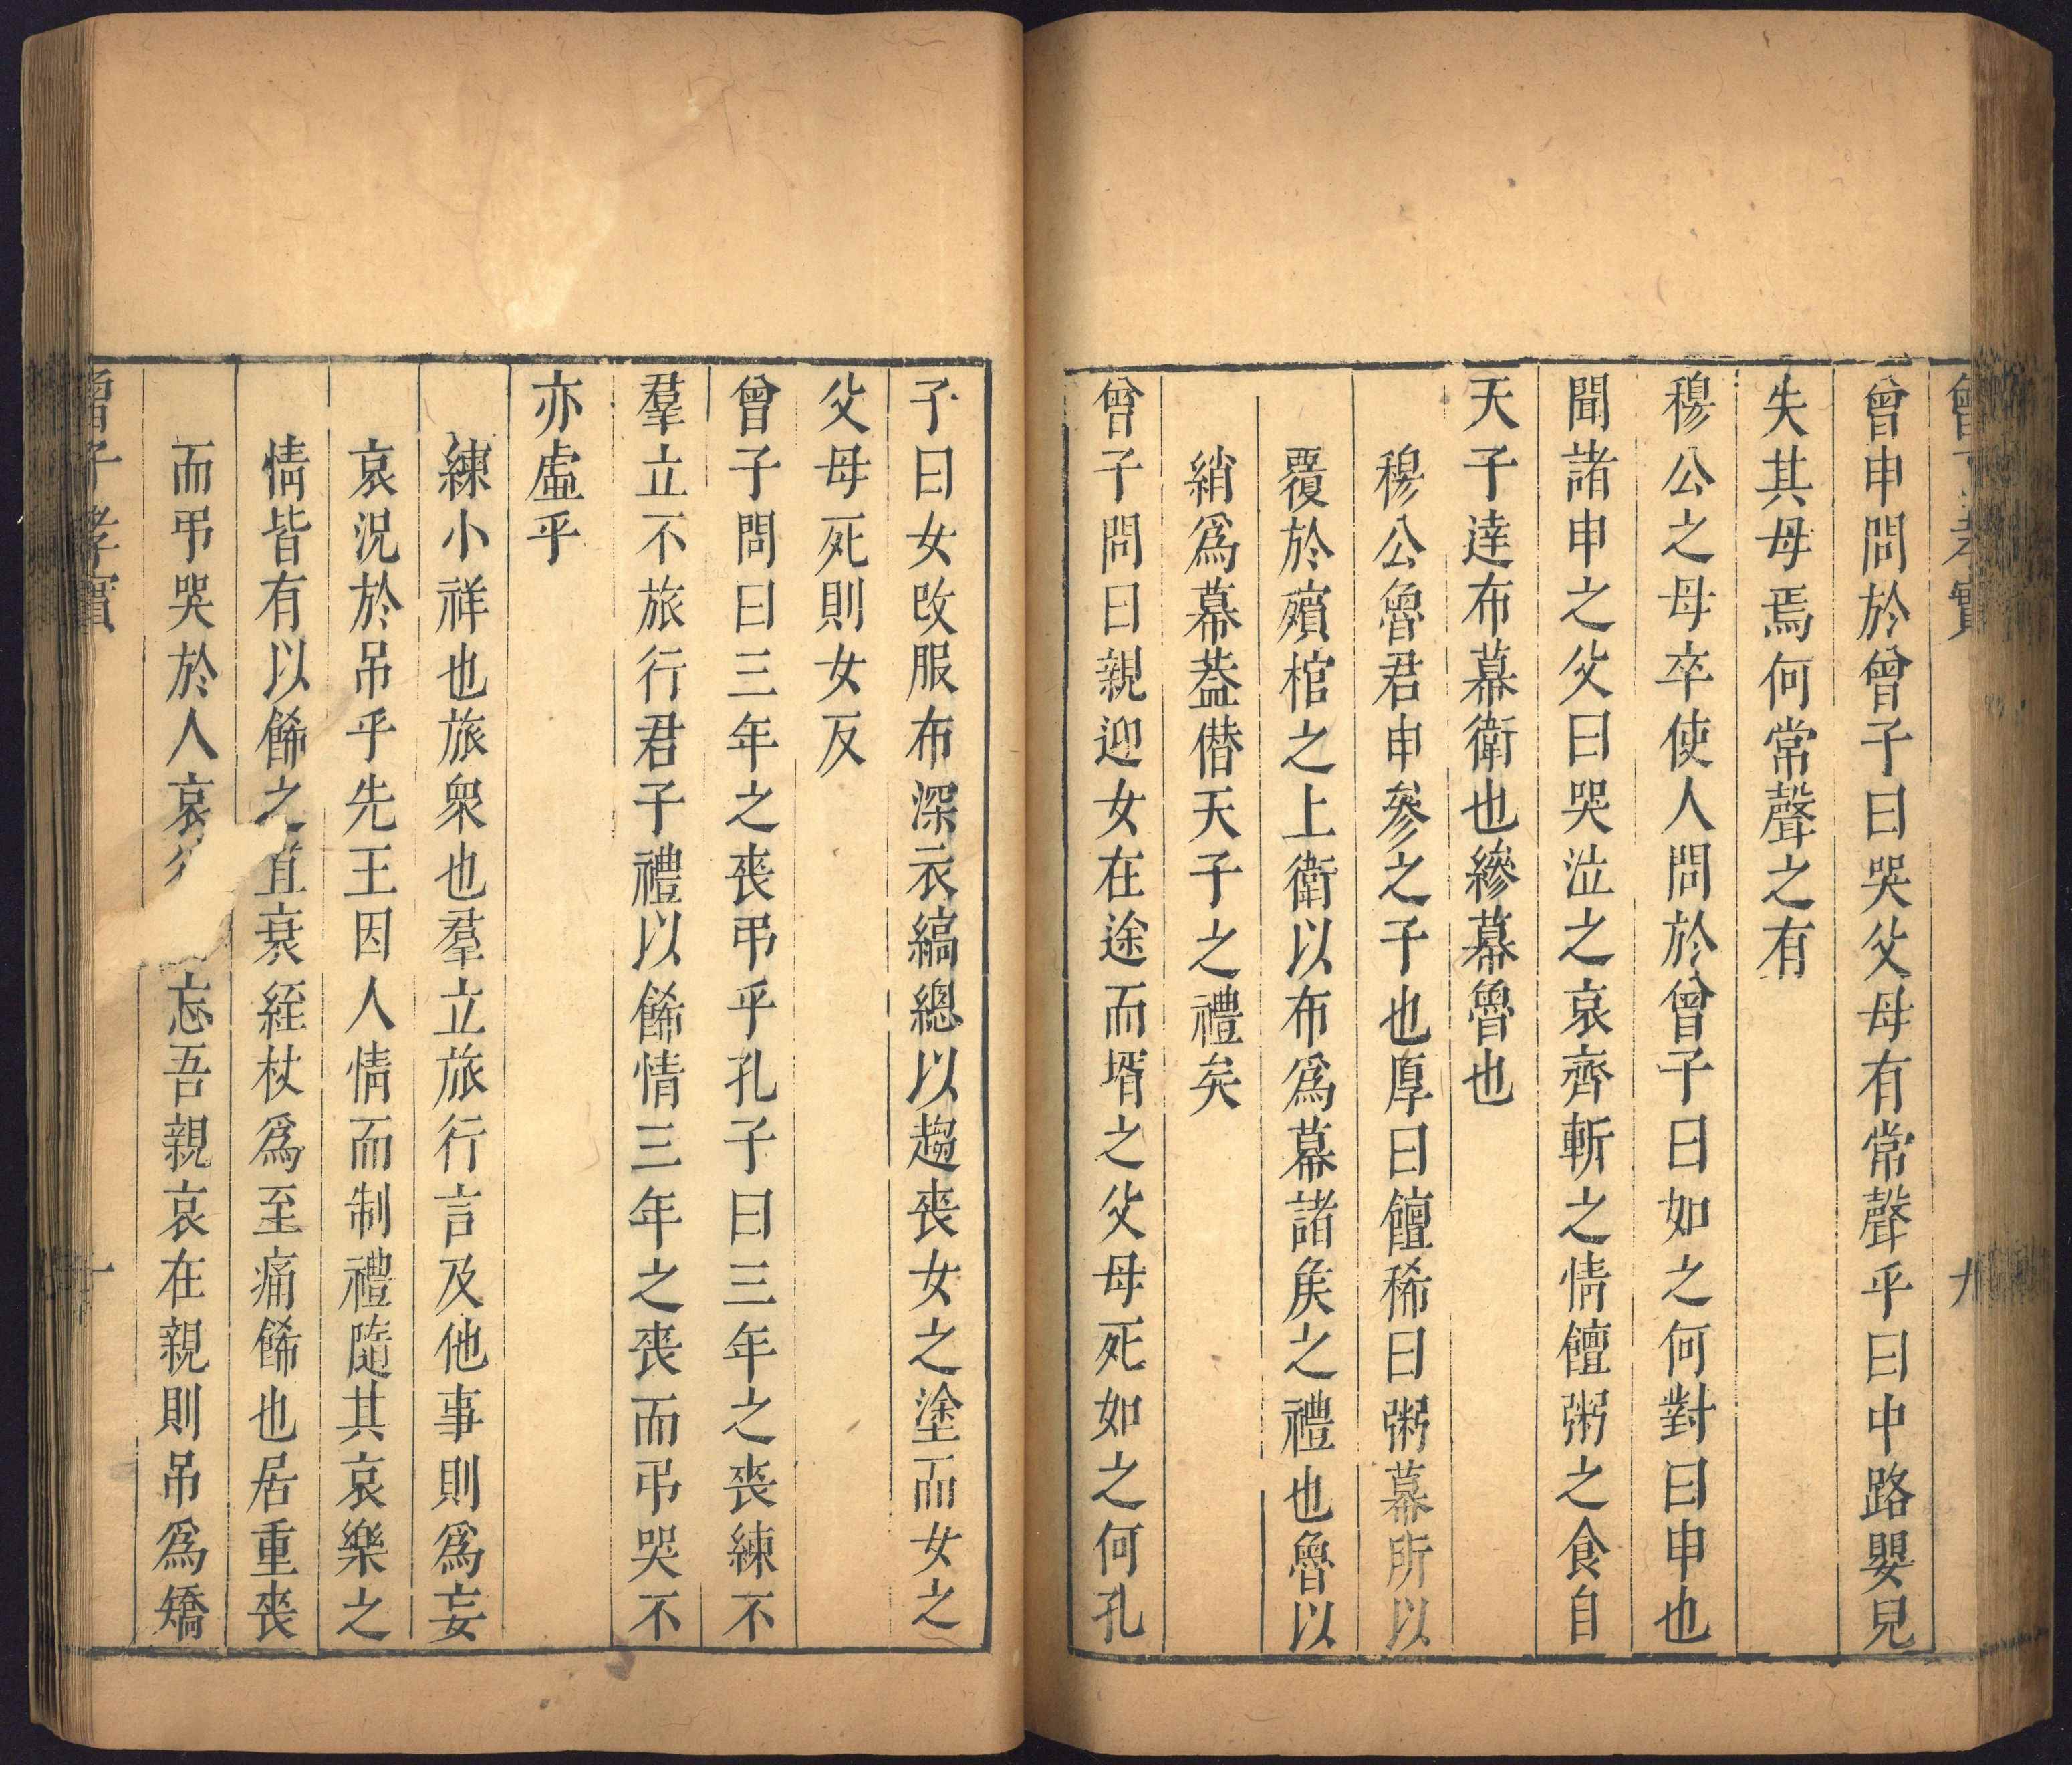 曾申問於曾子曰哭父母有常聲乎曰中路嬰兒
失其母焉何常聲之有
穆公之母卒使人問於曾子曰如之何對曰申也
聞諸申之父曰哭泣之哀齊斬之情饘粥之食自
天子達布幕衛也縿幕魯也
穆公魯君申參之子也厚曰饘稀曰粥幕所以
覆於殯棺之上衛以布爲幕諸矦之禮也魯以
綃爲幕葢僣天子之禮矣
曾子問曰親迎女在途而壻之父母死如之何孔
子曰女改服布深衣縞總以趨喪女之塗而女之
父母死則女反
曾子問曰三年之喪弔乎孔子曰三年之喪練不
羣立不旅行君子禮以餙情三年之喪而弔哭不
亦虛乎
練小祥也旅衆也羣立旅行言及他事則爲妄
哀況於吊乎先王因人情而制禮隨其哀樂之
情皆有以餙之直衰絰杖爲至痛餙也居重喪
而弔哭於人哀忘吾親哀在親則吊爲矯
曾子孝實